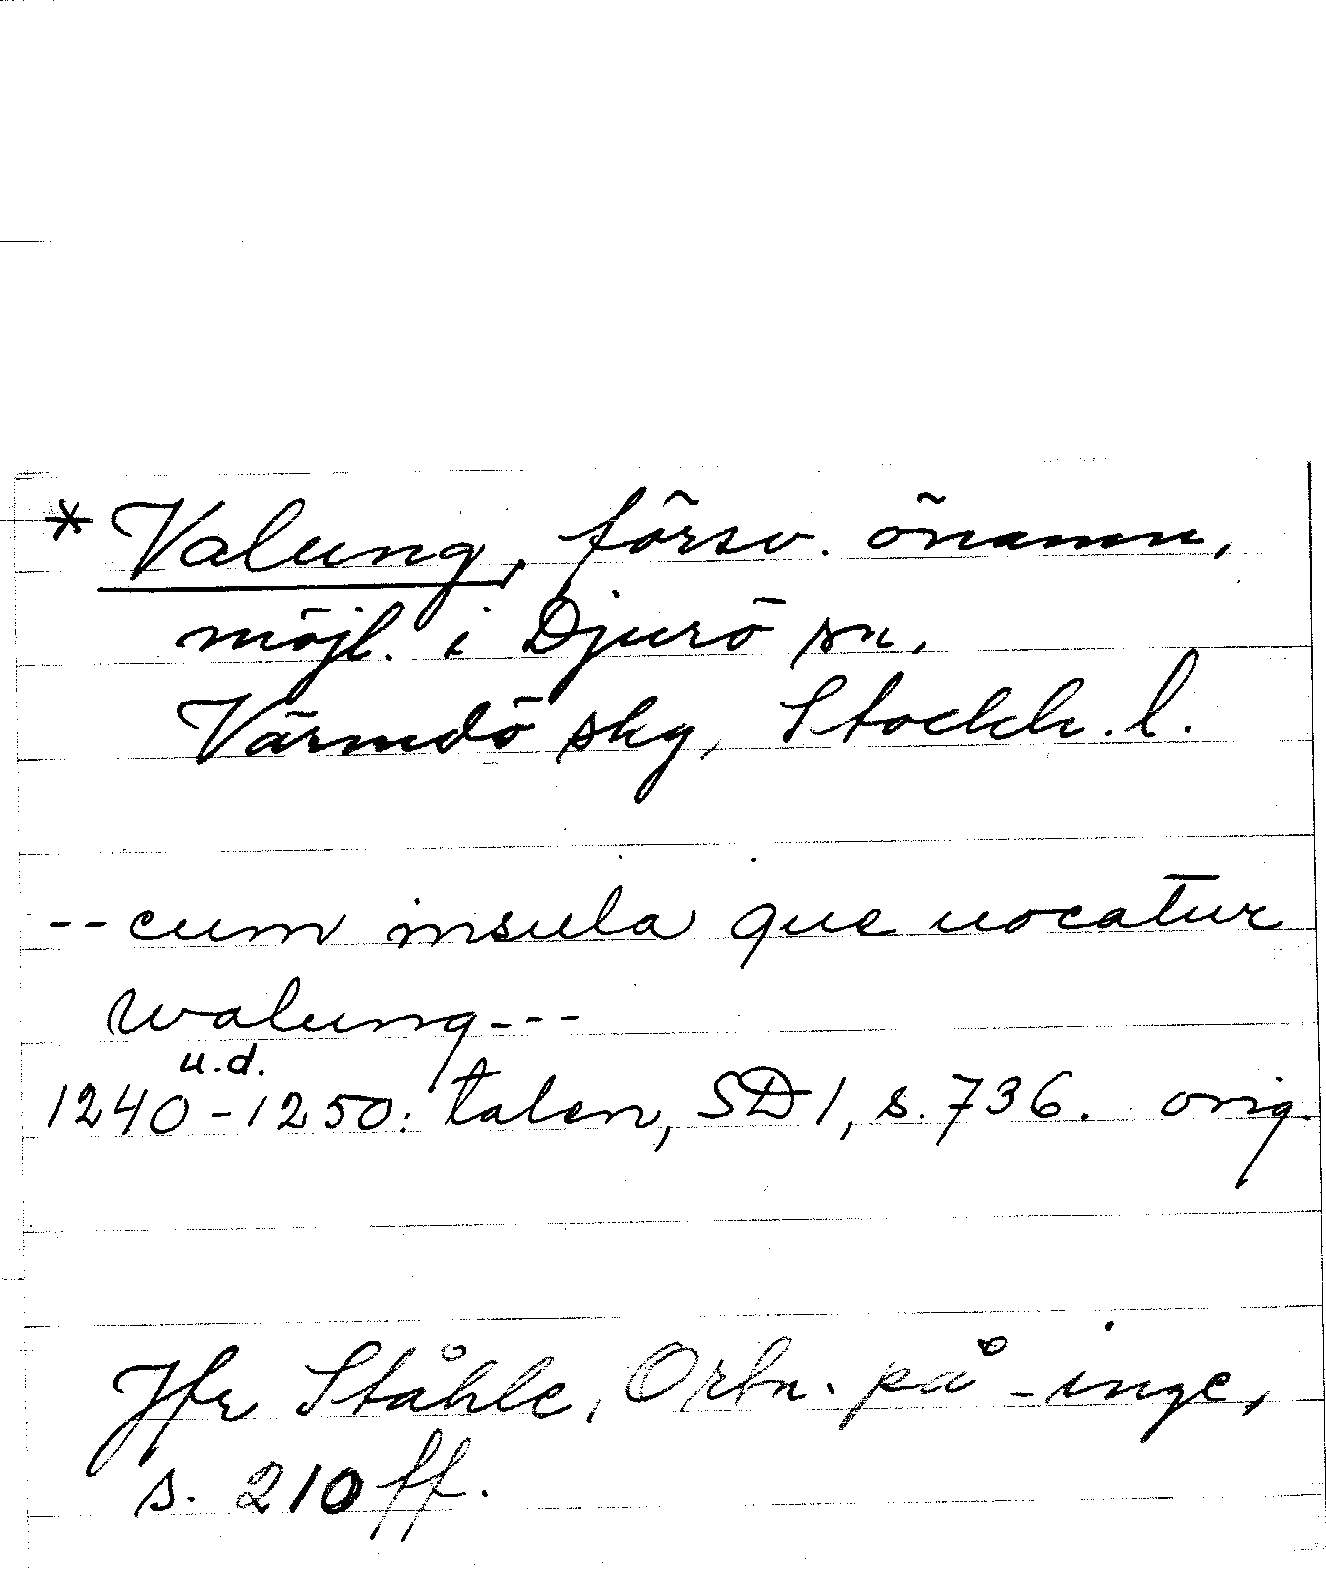 * Valung, försv. önamn,
möjl. i Djurö sn,
Värmdö skg, Stockh. l.
-- cum insula que uocatur
walung ---
u.d.
1240-1250: talen, SD 1, s. 736. orig.
Jfr Ståhle, Ortn. på -inge,
s. 210 ff.